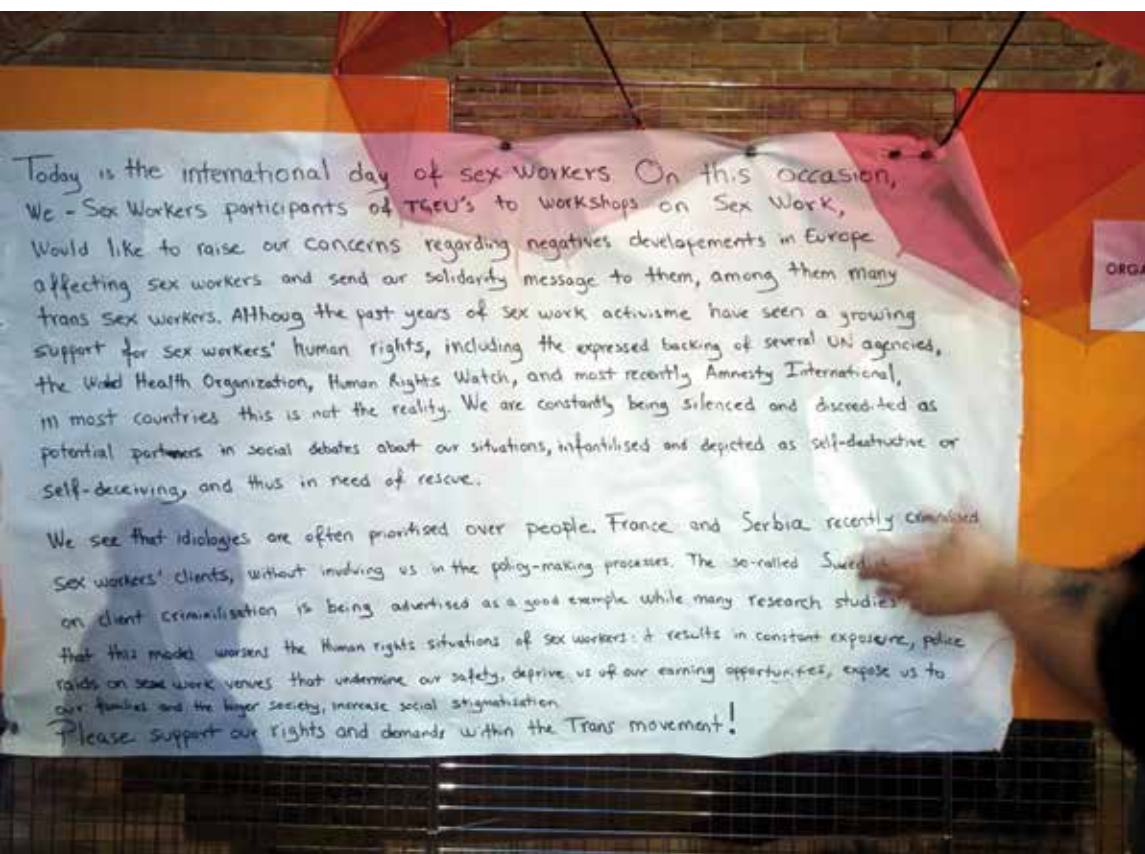 Today is the international day of sex workers On this occasion,
We - Sex Workers participants of TGEU's to workshops on Sex Work,
Would like to raise our concerns regarding negatives developements in Europe
affecting sex workers and send our solidarity message to them, among them many
trans sex workers. Althoug the past years of sex work activisme have seen a growing
support for sex workers' human rights, including the expressed backing of several UN agencies,
the World Health Organization, Human Rights Watch, and most recently Amnesty International,
in most countries this is not the reality. We are constantly being silenced and discredited as
potential partners in social debates about our situations, infantilised and depicted as self-destructive or
self-deceiving, and thus in need of rescue.
We see that idiologies are often prioritised over people. France and Serbia recently
sex workers' clients, without involving us in the policy-making processes. The so-called
on client criminilisation is being advertised as a good exemple while many research studies
that this model worsens the Human rights situations of sex workers: it results in constant exposure, police
raids on work venues that undermine our safety, deprive us of our earning opportunities, expose us to
our families and the larger society, increase social stigmatisation
Please support our rights and demands within the Trans movement!
ORGA